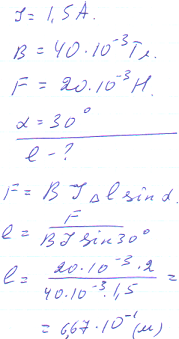 I = 1,5 A.
B = 40·10⁻³ Тл.
F = 20·10⁻³ Н.
α = 30°
l - ?
F = B I Δl sin α.
l = F / (B I sin 30°)
l = (20·10⁻³·2) / (40·10⁻³·1,5) =
= 6,67·10⁻¹ (м)